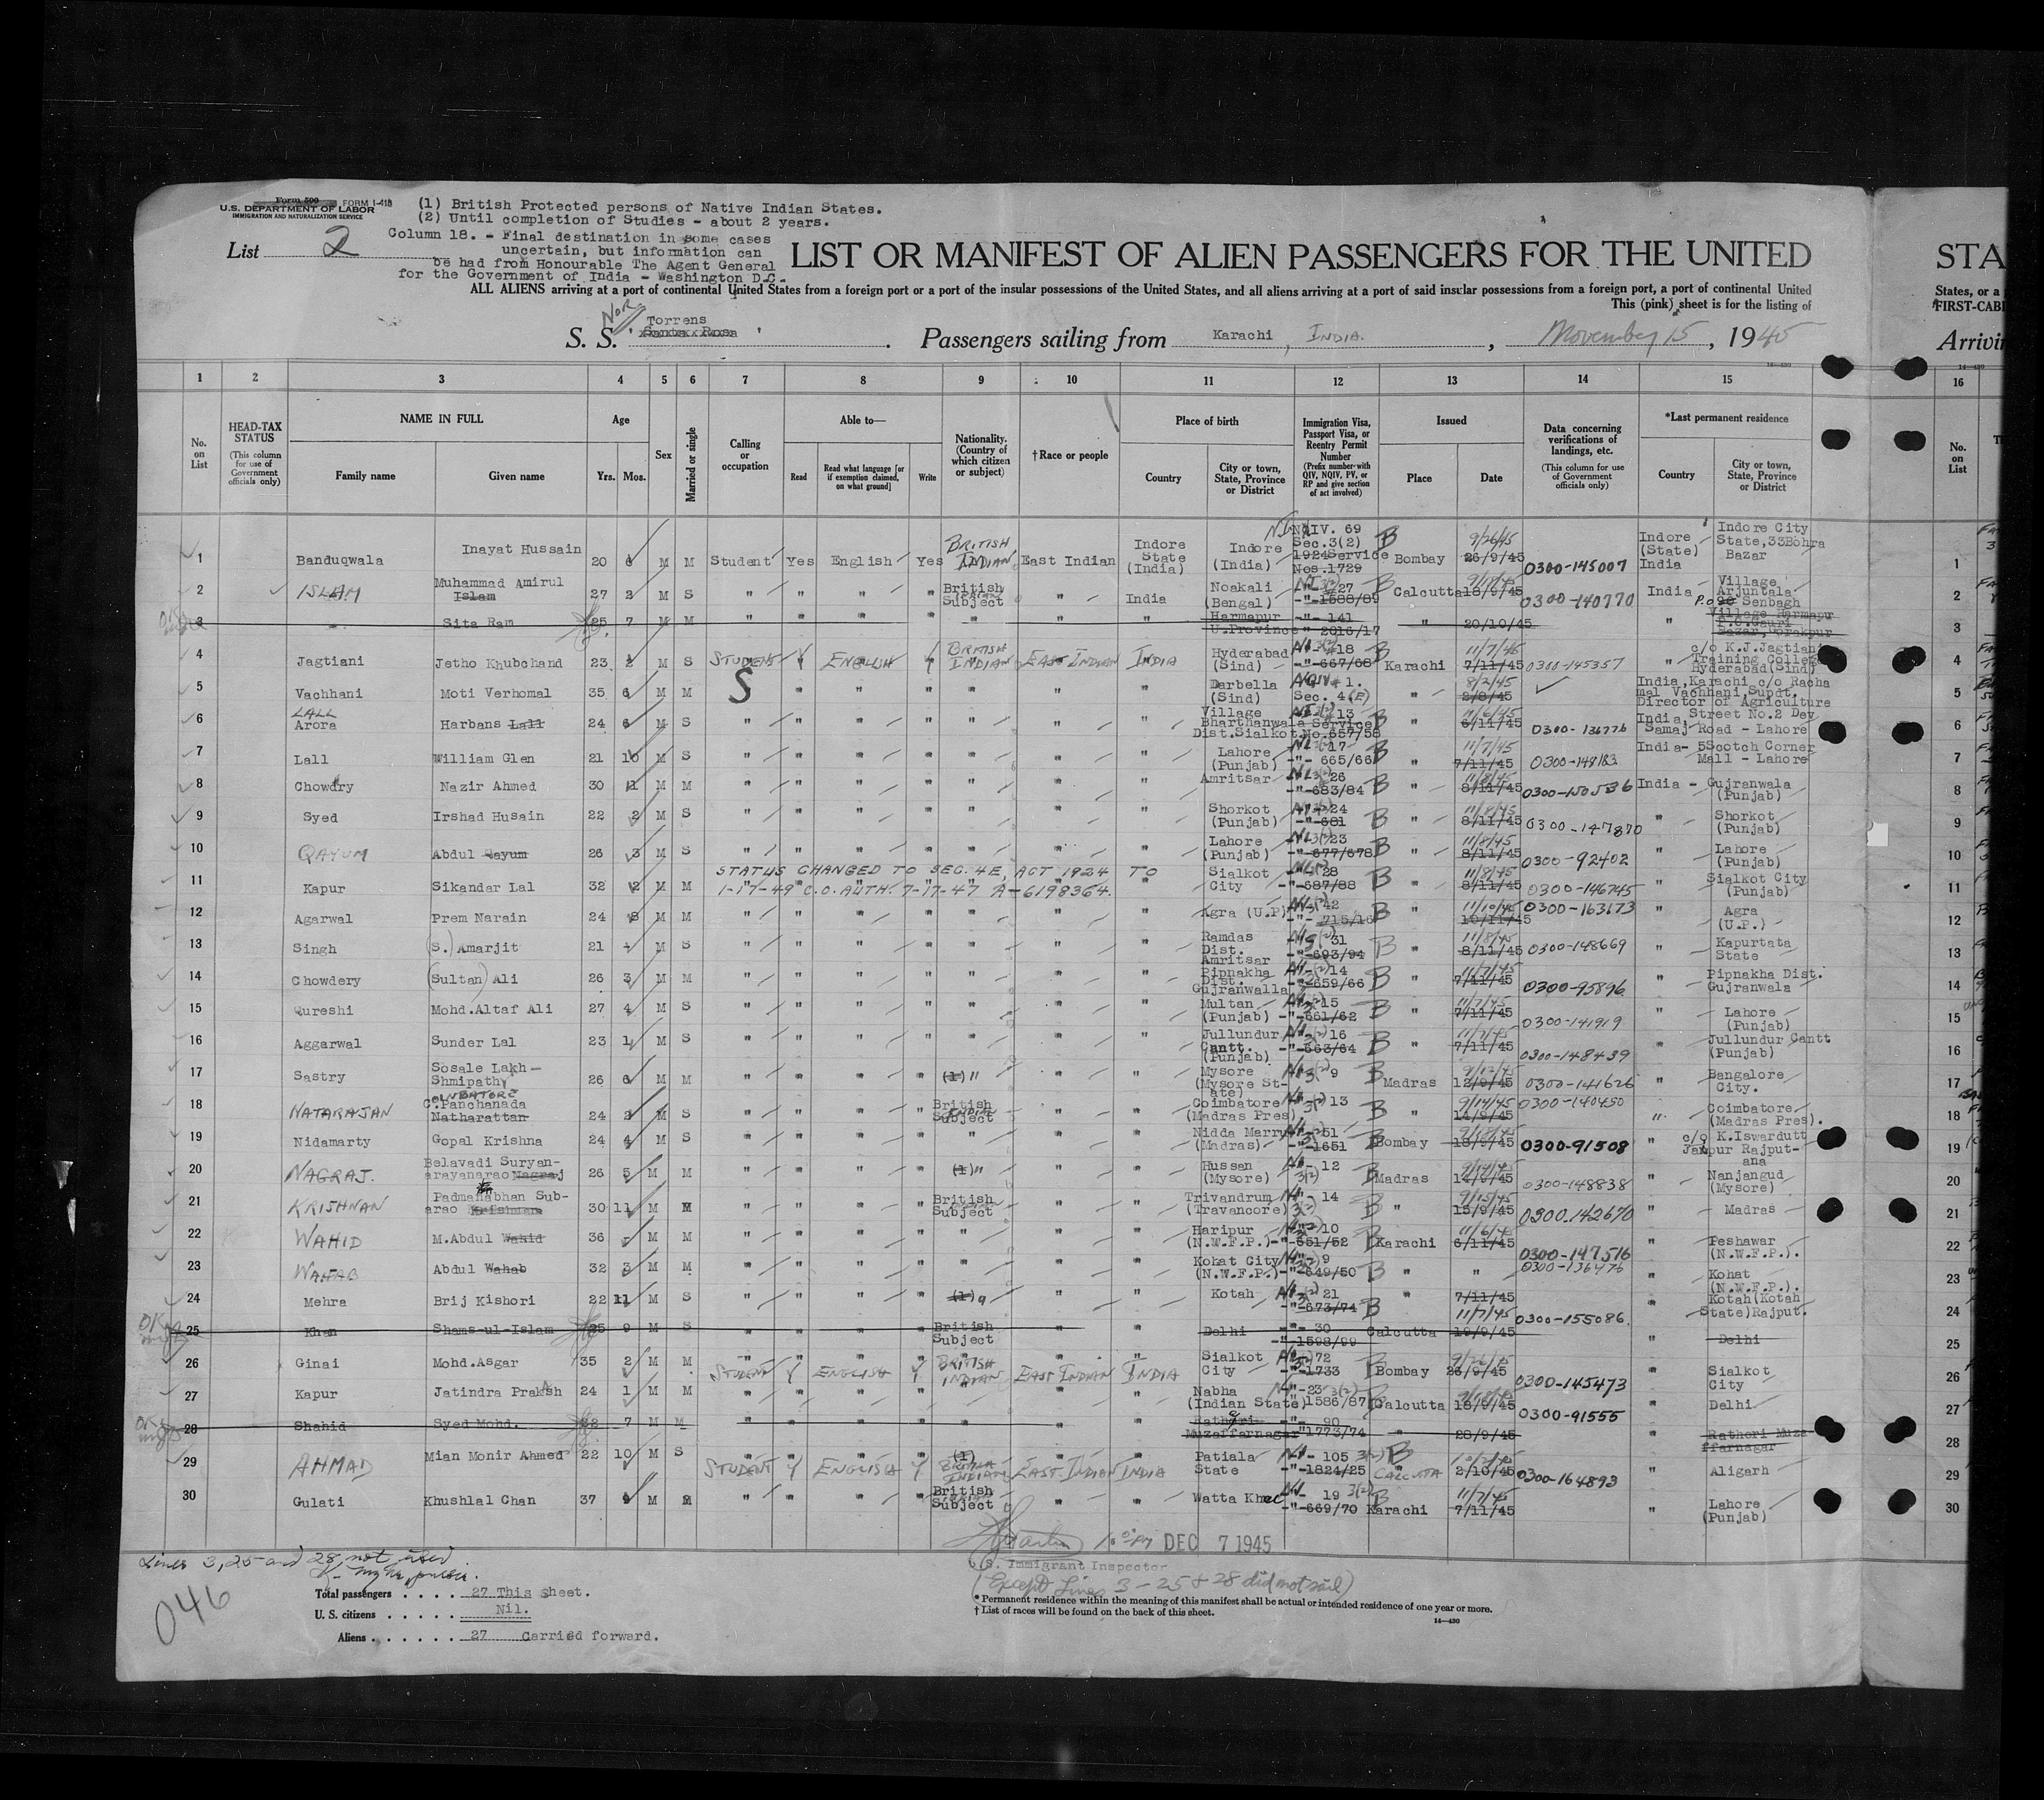 Form 500 FORM I-418
U.S. DEPARTMENT OF LABOR
IMMIGRATION AND NATURALIZATION SERVICE
(1) British Protected persons of Native Indian States.
(2) Until completion of Studies - about 2 years.
List 2
Column 18. - Final destination in some cases
uncertain, but information can
be had from Honourable The Agent General
for the Government of India - Washington D.C.
LIST OR MANIFEST OF ALIEN PASSENGERS FOR THE UNITED
STA
ALL ALIENS arriving at a port of continental United States from a foreign port or a port of the insular possessions of the United States, and all aliens arriving at a port of said insular possessions from a foreign port, a port of continental United
States, or a
This (pink) sheet is for the listing of
FIRST-CABI
S. S. Torrens Passengers sailing from Karachi, INDIA. , November 15, 1945
Arrivin
1 2 3 4 5 6 7 8 9 10 11 12 13 14 15 16
No. on List
HEAD-TAX STATUS (This column for use of Government officials only)
NAME IN FULL
Family name Given name
Age Yrs. Mos.
Sex
Married or single
Calling or occupation
Able to—
Read Read what language [or if exemption claimed, on what ground] Write
Nationality. (Country of which citizen or subject)
†Race or people
Place of birth
Country City or town, State, Province or District
Immigration Visa, Passport Visa, or Reentry Permit Number (Prefix number with QIV, NQIV, PV, or RP and give section of act involved)
Issued
Place Date
Data concerning verifications of landings, etc. (This column for use of Government officials only)
*Last permanent residence
Country City or town, State, Province or District
No. on List
1 Banduqwala Inayat Hussain 20 6 M M Student Yes English Yes BRITISH INDIAN East Indian Indore State (India) Indore (India) NQIV. 69 Sec.3(2) 1924 Service Nos.1729 B Bombay 9/26/45 26/9/45 0300-145007 Indore (State) India Indore City State,33Bohra Bazar 1
2 ISLAM Muhammad Amirul Islam 27 2 M S " " " " British Subject " India Noakali (Bengal) 27 1588/89 B Calcutta 18/9/45 0300-140770 India Village Arjuntala P.O. Senbagh 2
3 Sita Ram 25 7 M M " " " " " " " Harmapur U.Province 141 2016/17 " 20/10/45 " Village Harmapur 3
4 Jagtiani Jetho Khubchand 23 M S STUDENT Y ENGLISH Y BRITISH INDIAN EAST INDIAN INDIA Hyderabad (Sind) 18 667/68 B Karachi 11/7/45 7/11/45 0300-145357 " c/o K.J.Jagtiani Training College Hyderabad(Sind) 4
5 Vachhani Moti Verhomal 35 6 M M S " " " " " " Darbella (Sind) NQIV # 1. Sec. 4(E) " 8/2/45 2/8/45 India,Karachi c/o Racha mal Vachhani,Supdt. Director of Agriculture 5
6 LALL Arora Harbans Lall 24 6 M S " " " " " " " Village Bharthanwala Dist.Sialkot 13 Service No.657/58 B " 11/6/45 6/11/45 0300-136776 India Street No.2 Dev Samaj Road - Lahore 6
7 Lall William Glen 21 10 M S " " " " " " " Lahore (Punjab) 17 665/66 B " 11/7/45 7/11/45 0300-148183 India- 5Scotch Corner Mall - Lahore 7
8 Chowdry Nazir Ahmed 30 11 M M " " " " " " " Amritsar 26 683/84 B " 11/8/45 8/11/45 0300-150536 India - Gujranwala (Punjab) 8
9 Syed Irshad Husain 22 2 M S " " " " " " " Shorkot (Punjab) 24 681 B " 11/8/45 8/11/45 0300-147870 " Shorkot (Punjab) 9
10 QAYUM Abdul Qayum 26 3 M S " " " " " " " Lahore (Punjab) 23 677/678 B " 11/8/45 8/11/45 0300-92402 " Lahore (Punjab) 10
STATUS CHANGED TO SEC. 4E, ACT 1924 TO
11 Kapur Sikandar Lal 32 2 M M 1-17-49 C.O. AUTH. 7-17-47 A-6198364. Sialkot City 28 687/88 B " 11/8/45 8/11/45 0300-146745 " Sialkot City (Punjab) 11
12 Agarwal Prem Narain 24 8 M M " " " " " " " Agra (U.P) 42 715/16 B " 11/10/45 10/11/45 0300-163173 " Agra (U.P.) 12
13 Singh (S.) Amarjit 21 - M S " " " " " " " Ramdas Dist. Amritsar 31 693/94 B " 11/8/45 8/11/45 0300-148669 " Kapurtata State 13
14 Chowdery (Sultan) Ali 26 3 M M " " " " " " " Pipnakha Dist. Gujranwalla 14 659/66 B " 11/7/45 7/11/45 0300-95896 " Pipnakha Dist. Gujranwala 14
15 Qureshi Mohd.Altaf Ali 27 4 M S " " " " " " " Multan (Punjab) 15 661/62 B " 11/7/45 7/11/45 0300-141919 " Lahore (Punjab) 15
16 Aggarwal Sunder Lal 23 1 M S " " " " " " " Jullundur Cantt. (Punjab) 16 663/64 B " 11/7/45 7/11/45 0300-148439 " Jullundur Cantt (Punjab) 16
17 Sastry Sosale Lakh-Shmipathy 26 6 M M " " " " (1)" " " Mysore (Mysore State) 9 B Madras 9/12/45 12/9/45 0300-141626 " Bangalore City. 17
18 NATARAJAN COIMBATORE C.Panchanada Natharattan 24 2 M S " " " " British Subject " " Coimbatore (Madras Pres) 13 B " 9/14/45 14/9/45 0300-140450 " Coimbatore (Madras Pres). 18
19 Nidamarty Gopal Krishna 24 4 M S " " " " " " " Nidda Marru (Madras) 51 1651 B Bombay 9/18/45 18/9/45 0300-91508 " c/o K.Iswardutt Jaipur Rajputana 19
20 NAGRAJ. Belavadi Suryanarayanarao Nagraj 26 5 M M " " " " (1)" " " Hussen (Mysore) 12 B Madras 9/14/45 14/9/45 0300-148838 " Nanjangud (Mysore) 20
21 KRISHNAN Padmanabhan Subarao Krishnan 30 11 M M " " " " British Subject " " Trivandrum (Travancore) 14 B " 9/15/45 15/9/45 0300-142670 " Madras 21
22 WAHID M.Abdul Wahid 36 - M M " " " " " " " Haripur (N.W.F.P.) 10 651/52 B Karachi 11/6/45 6/11/45 0300-147516 " Peshawar (N.W.F.P.). 22
23 WAHAB Abdul Wahab 32 3 M M " " " " " " " Kohat City (N.W.F.P.) 9 649/50 B " " 0300-136476 " Kohat (N.W.F.P.). 23
24 Mehra Brij Kishori 22 11 M S " " " " (1) " " Kotah 21 673/74 B " 7/11/45 11/7/45 0300-155086. " Kotah(Kotah State)Rajput. 24
25 Khan Shams-ul-Islam 25 9 M S " " " " British Subject " " Delhi 30 1598/99 Calcutta 19/9/45 " Delhi 25
26 Ginai Mohd.Asgar 35 2 M M STUDENT Y ENGLISH Y BRITISH INDIAN EAST INDIAN INDIA Sialkot City 72 1733 B Bombay 9/26/45 26/9/45 0300-145473 " Sialkot City 26
27 Kapur Jatindra Praksh 24 1 M M " " " " " " " Nabha (Indian State) 23 1586/87 Calcutta 18/9/45 0300-91555 " Delhi 27
28 Shahid Syed Mohd. 22 7 M M " " " " " " " Rathori Muzaffarnagar 90 1773/74 " 28/9/45 " Rathori Muzaffarnagar 28
29 AHMAD Mian Monir Ahmed 22 10 M S STUDENT Y ENGLISH Y (1) BRITISH INDIAN EAST INDIAN INDIA Patiala State 105 1824/25 B CALCUTTA 2/10/45 0300-164893 " Aligarh 29
30 Gulati Khushlal Chan 37 9 M M " " " " British Subject " " Watta Khel 19 669/70 B Karachi 11/7/45 7/11/45 " Lahore (Punjab) 30
Lines 3, 25 and 28 not used
DEC 7 1945
U.S. Immigrant Inspector
(Except Lines 3 - 25 & 28 did not sail)
046
Total passengers . . . . 27 This sheet.
U. S. citizens . . . . . Nil.
Aliens . . . . . . 27 Carried forward.
* Permanent residence within the meaning of this manifest shall be actual or intended residence of one year or more.
† List of races will be found on the back of this sheet.
14—430